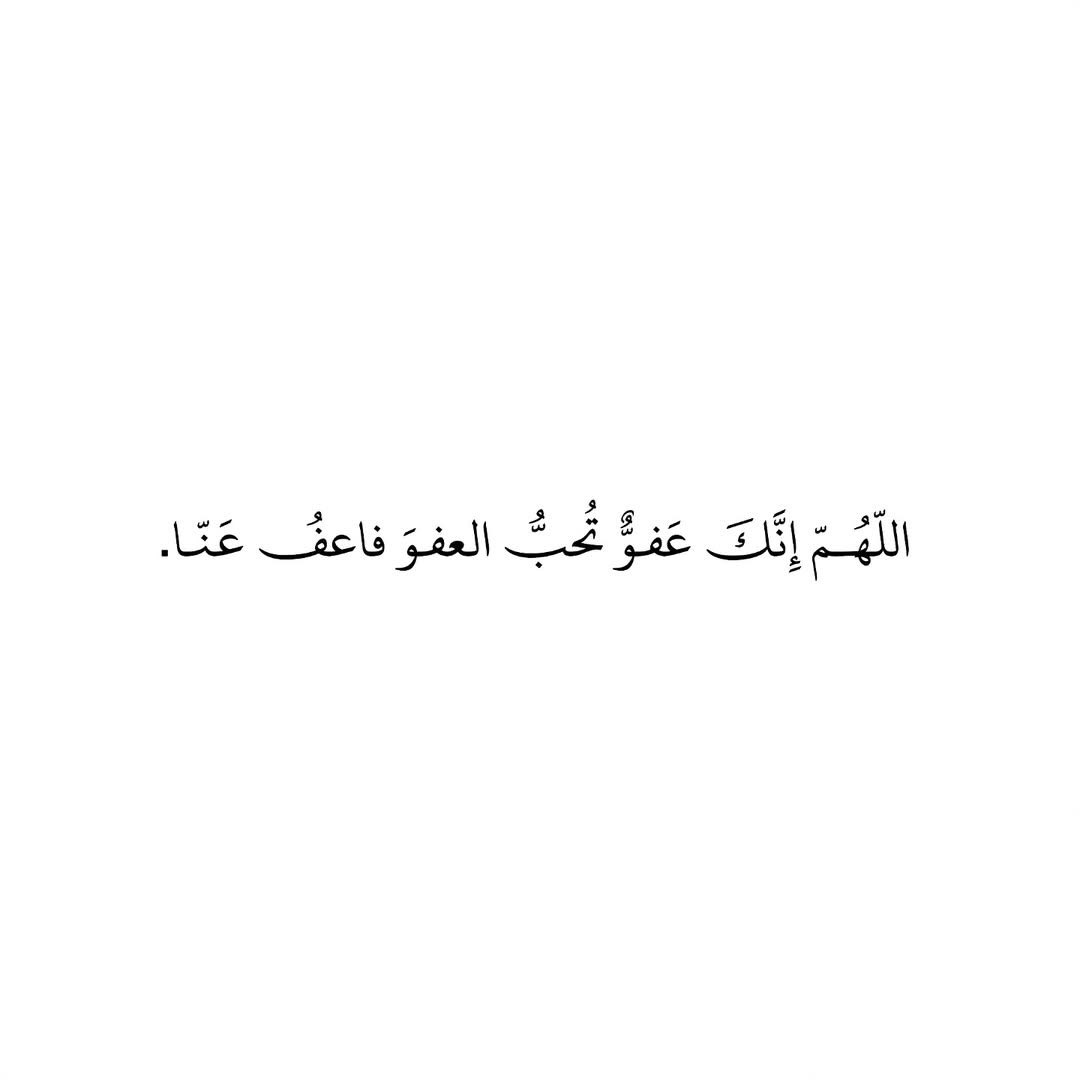 اللّهُـمّ إِنَّكَ عَفـوٌّ تُحبُّ العفـوَ فاعفُ عَنّـا.